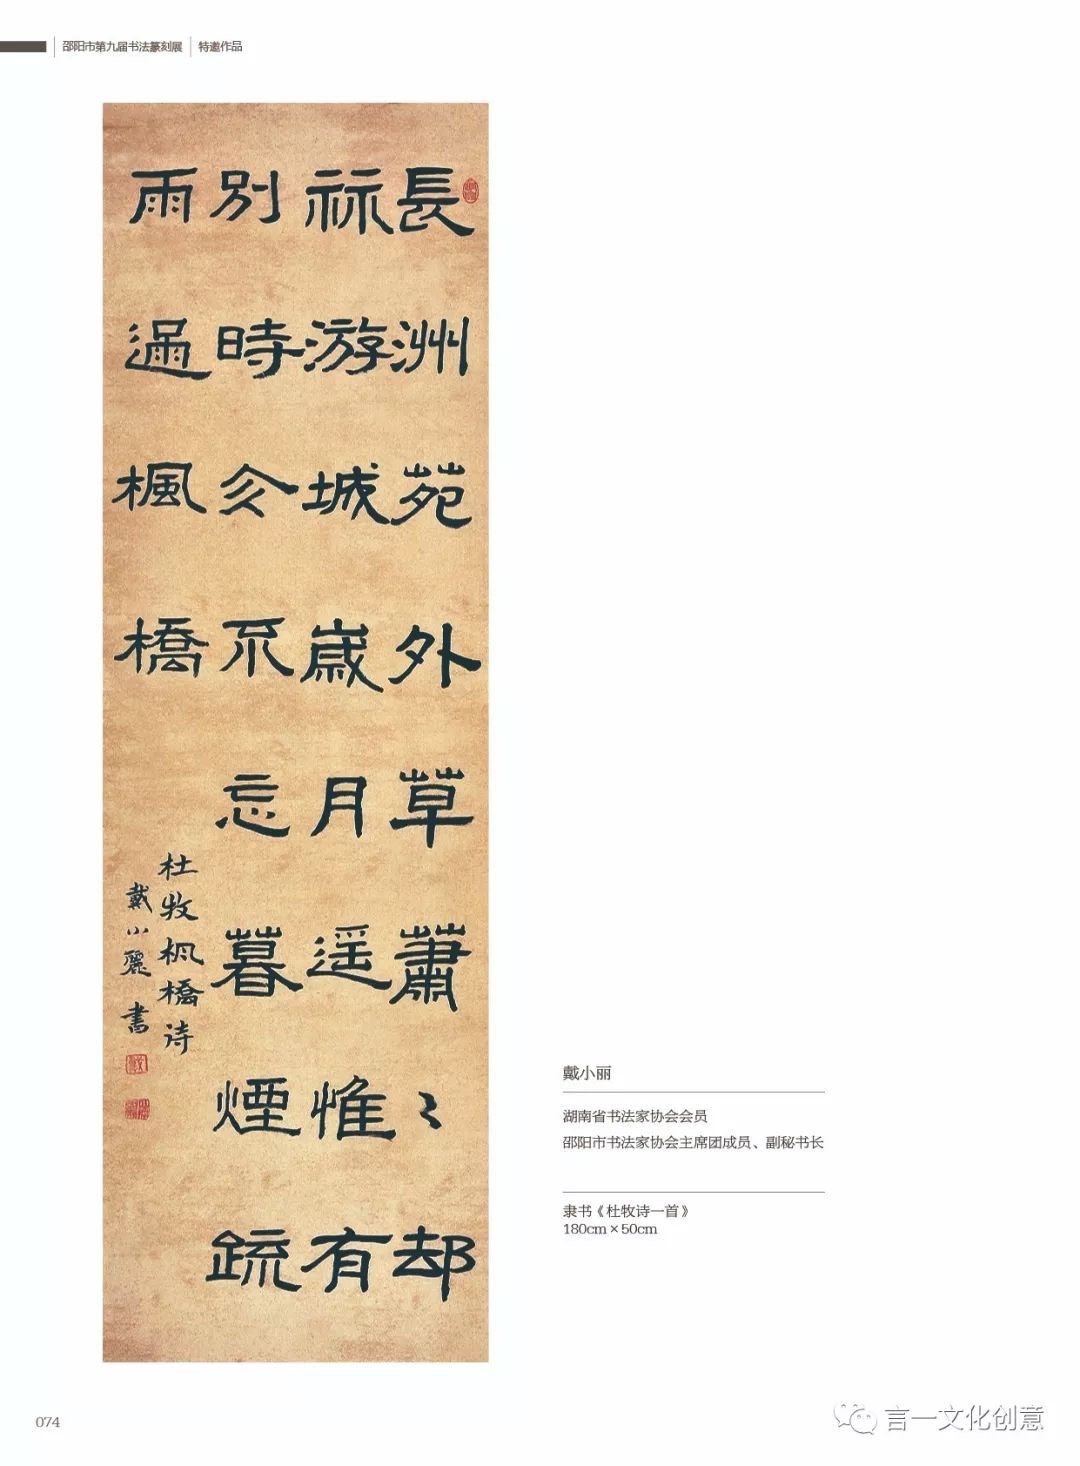 邵阳市第九届书法篆刻展 特邀作品
長洲苑外草蕭〻却
祘游城歲月遥惟有
別時今不忘暮煙疏
雨過楓橋
杜牧枫橋诗
戴小麗書
戴小丽
湖南省书法家协会会员
邵阳市书法家协会主席团成员、副秘书长
隶书《杜牧诗一首》
180cm×50cm
074
言一文化创意